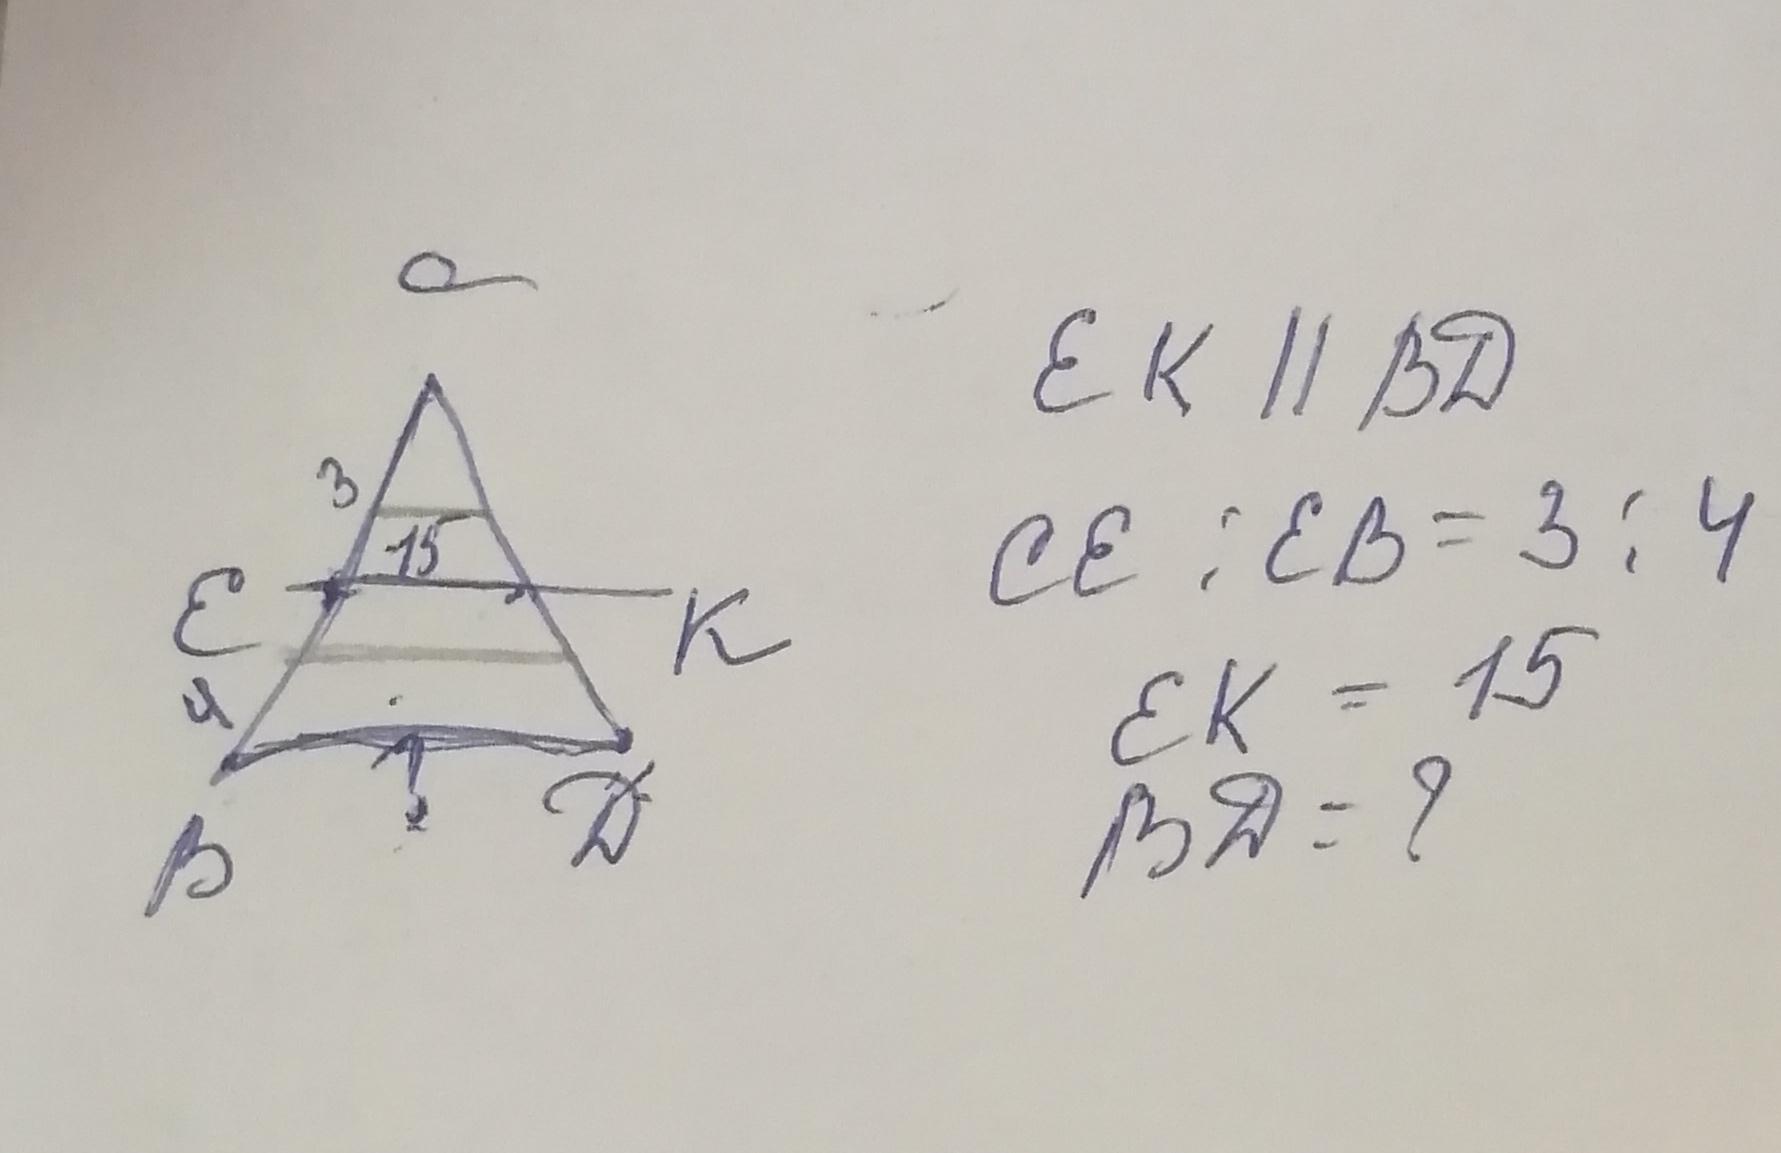 C
3
15
E
K
4
?
B
D
EK || BD
CE : EB = 3 : 4
EK = 15
BD = ?